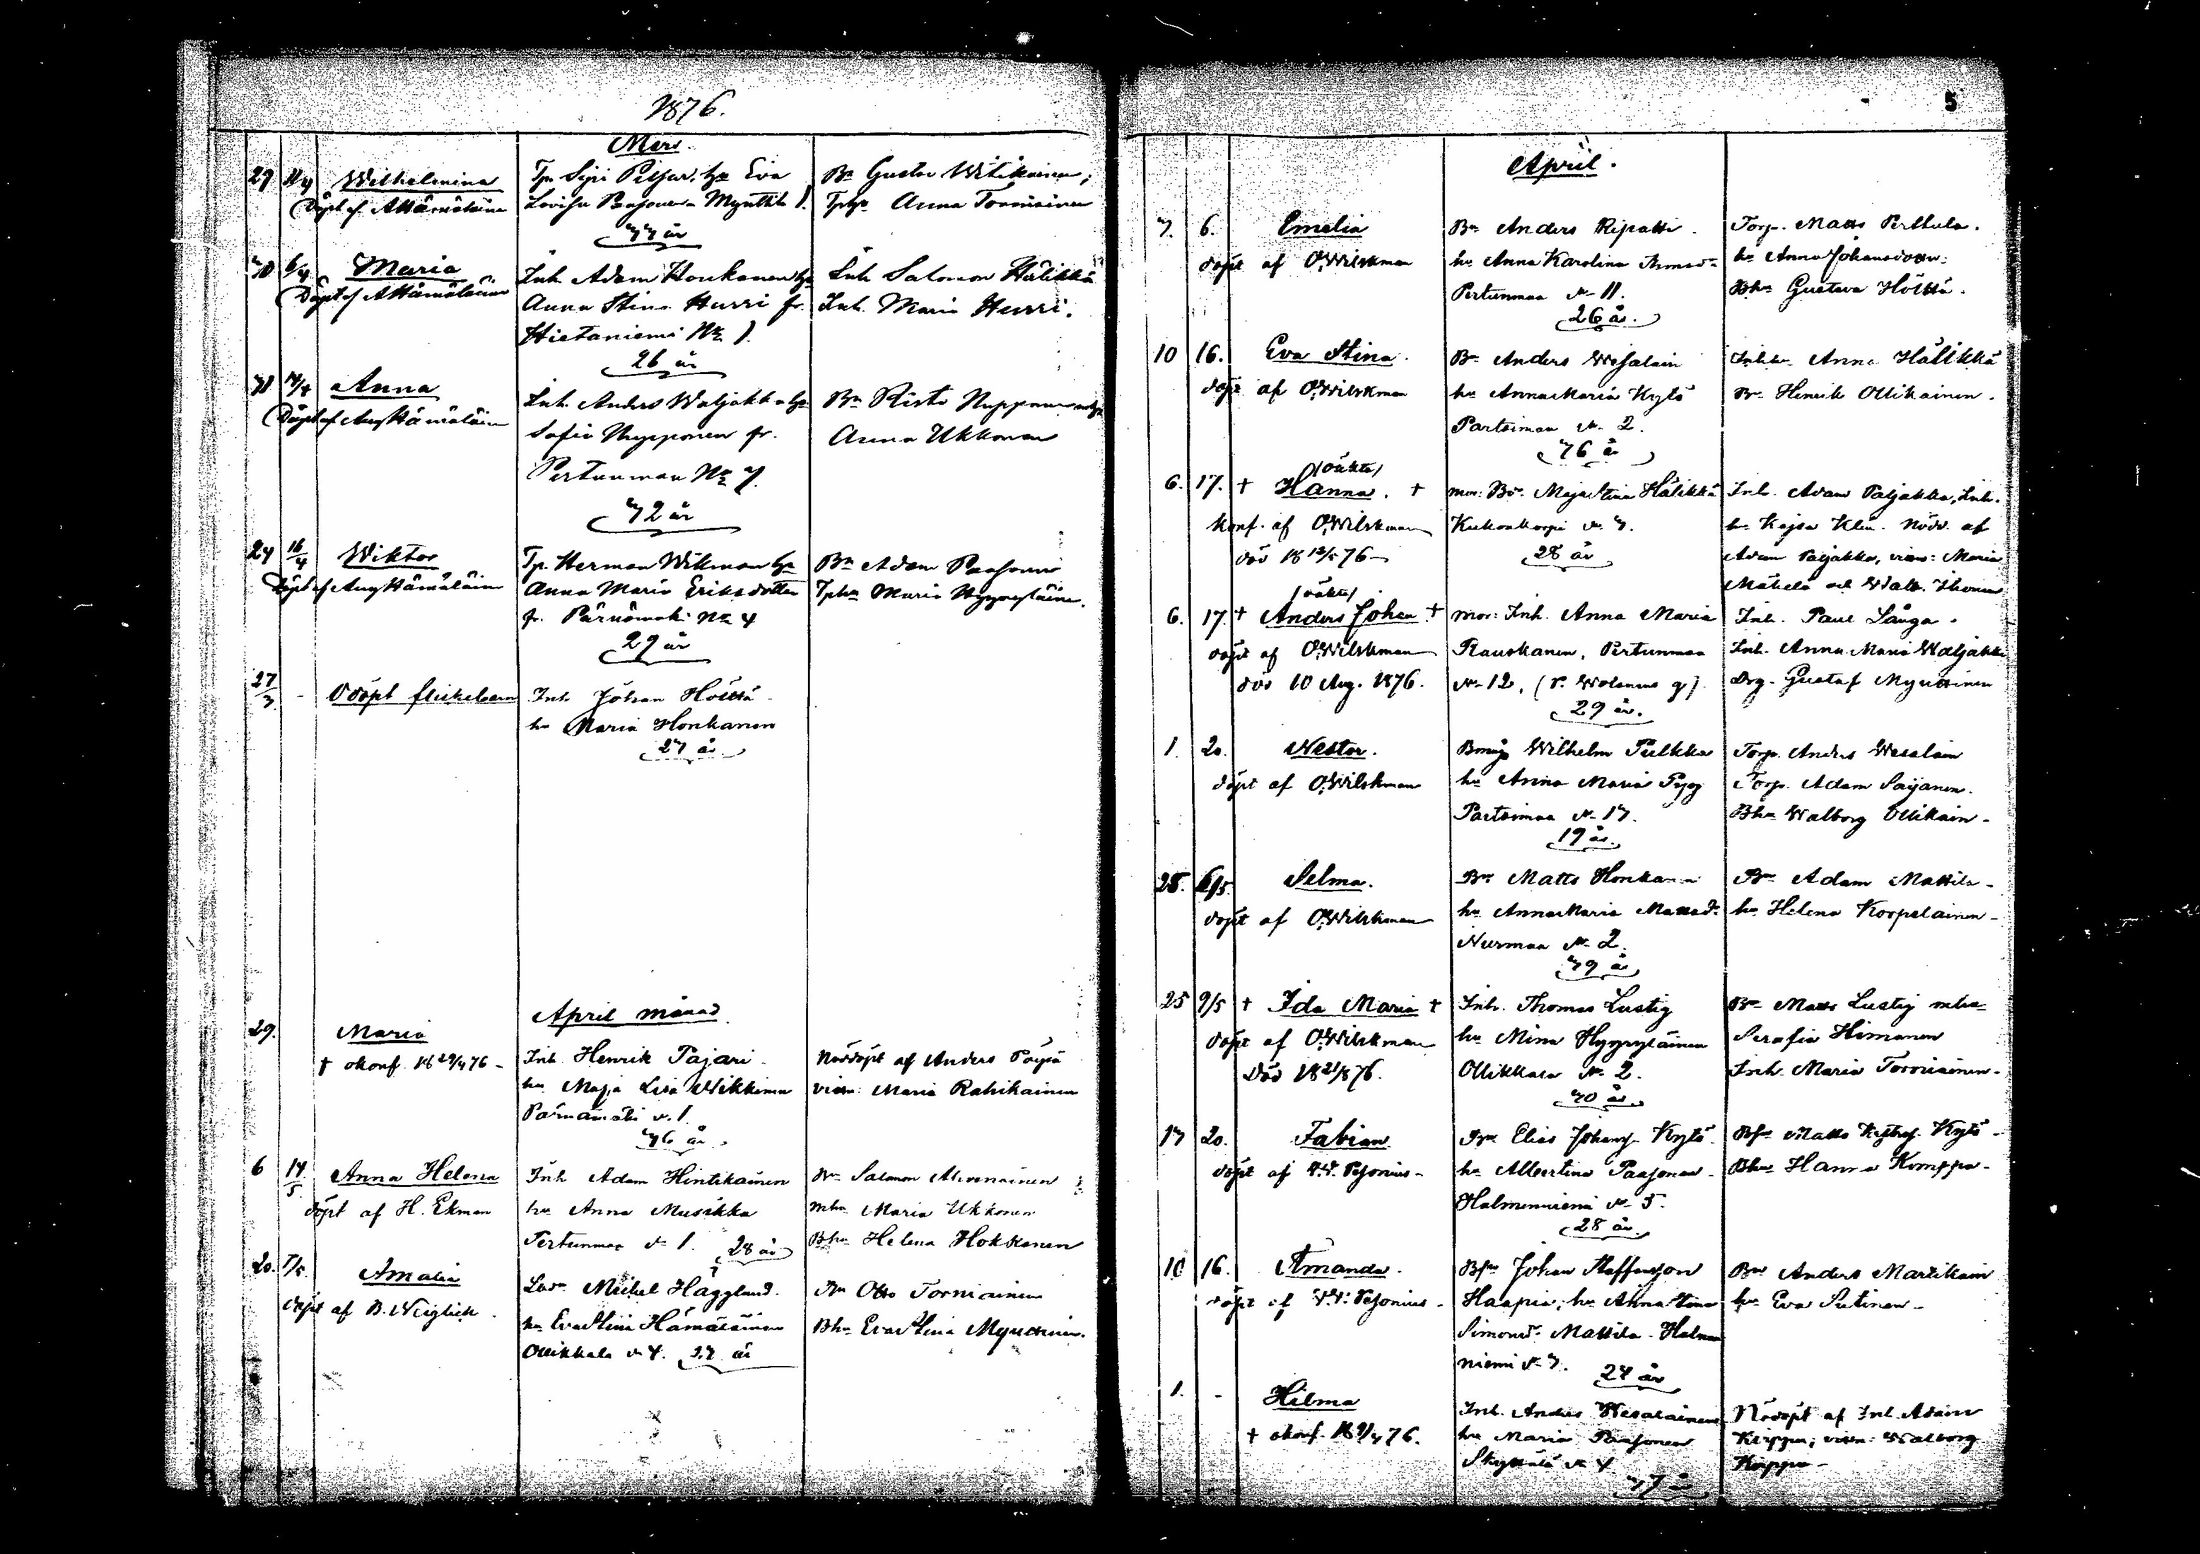 1876.
Mars.
29 11/4 Wilhelmina
Döpt af A Hämäläinen
Tp. Sipi Piispar. hu Eva
Lovisa Paasonen Mynttilä 1.
37 år
Bn Gustav Witikainen;
Tphu Anna Torniainen
30 6/4 Maria
Döpt af A Hämäläinen
Inh. Adam Honkanen hu
Anna Stina Hurri fr.
Hietaniemi No 1
26 år
Inh Salomon Hälikkä
Inh. Maria Hurri.
31 14/4 Anna
Döpt af Aug Hämäläinen
Inh. Anders Waljakka hu
Sofia Nupponen fr.
Pertunmaa No 7.
32 år
Bn Risto Nupponen
Anna Ukkonen
24 16/4 Wiktor
Döpt af Aug Hämäläinen
Tp. Herman Wikman hu
Anna Maria Eriksdotter
fr. Pärnämäki No 4
29 år
Bn Adam Paasonen
Tphu Maria Hyyryläinen.
27/3 - Odöpt flickebarn
Inh Johan Hölttä
hu Maria Honkanen
27 år
April månad
29. Maria
† okonf. 18 29/4 76 -
Inh. Henrik Pajari
hu Maja Lisa Wikkonen
Pärnämäki N. 1.
36 år
Nöddöpt af Anders Pöyiä
vitn: Maria Rahikainen
6 14/5 Anna Helena
döpt af H. Ekman
Inh Adam Hintikainen
hu Anna Musikka
Pertunmaa N 1. 28 år
Bn Salomon
mhu Maria Ukkonen
Bhu Helena Hokkanen
20. 7/5. Amalia
döpt af B. Neiglick.
Michel Hägglund.
hu Eva Stina Hämäläinen
Ollikkala N 4. 37 år
Bn Otto Torniainen
Bhu Eva Stina Myntinen.
5
April.
7. 6. Emelia
döpt af O. Wilskman
Bn Anders Ripatti.
hu Anna Karolina Thomasd.
Pertunmaa N 11.
26 år.
Torp. Matts Perttula.
hu Anna Johansdotter:
Bhu Gustava Hölttä.
10 16. Eva Stina.
döpt af O. Wilskman
Bn Anders Wesalain
hu Anna Maria Kytö
Partsimaa N. 2.
36 år
Inhhu Anna Hälikkä
Bn Henrik Ollikainen.
6. 17. † Hanna. † (oäkta)
konf. af O. Wilskman
död 18 12/5 76 -
mor: Bd. Maja Stina Hälikkä
Kuhankorpi N 3.
28 år
Inh. Adam Paljakka, Inh.
hu Kajsa Klin. Nödd. af
Adam Paljakka, vitn: Maria
Mäkelä och Walb. Ihonen
6. 17 † Anders Johan † (oäkta)
döpt af O. Wilskman
död 10 Aug. 1876.
mor: Inh. Anna Maria
Rauskanen, Pertunmaa
N 12,
29 år.
Inh. Paul Långa.
Inh. Anna Maria Waljakka
Drg. Gustaf Myntinen
1. 20. Nestor.
döpt af O. Wilskman
Bmåg Wilhelm Pulkka
hu Anna Maria Pyy
Partsimaa N. 17.
19 år.
Torp. Anders Wesalain
Torp. Adam Saijanen.
Bhu Walborg Ollikain -
25. 6/5. Selma.
döpt af O. Wilskman
Bn Matts Honkanen
hu Anna Maria Mattsd.
Nurmaa N. 2.
39 år
Bn Adam Mattila -
hu Helena Korpelainen -
25 9/5 † Ida Maria †
döpt af O. Wilskman
död 18 21/8 76.
Inh. Thomas Lustig
hu Mina Hyyryläinen
Ollikkala N. 2.
30 år.
Bn Matts Lustig mhu
Serafia Himanen
Inh. Maria Torniainen -
17 20. Fabian
döpt af Pesonius -
Bn Elias Johansson Kytö
hu Albertina Paasonen -
Halmeniemi N 5.
28 år.
Matts Kytö -
Bhu Hanna Komppa -
10 16. Amanda.
döpt af Pesonius -
Johan Staffansson
Haapia, hu Anna Stina
Simonsd. Mattila Halme
niemi N 3. 24 år
Bn Anders Martikain
hu Eva Sutinen -
1. - Hilma
† okonf. 18 9/4 76.
Inh. Anders Wesalainen
hu Maria Paasonen
N 4
37 år
Nöddöpt af Inh. Adam
vitn: Walborg